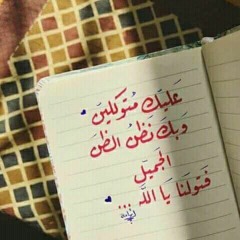 عَليَك مُتوَكلين
وَبكَ نَظنُ الظنَ
الجَميَل
فَتولَنا يَا اللَّه ...